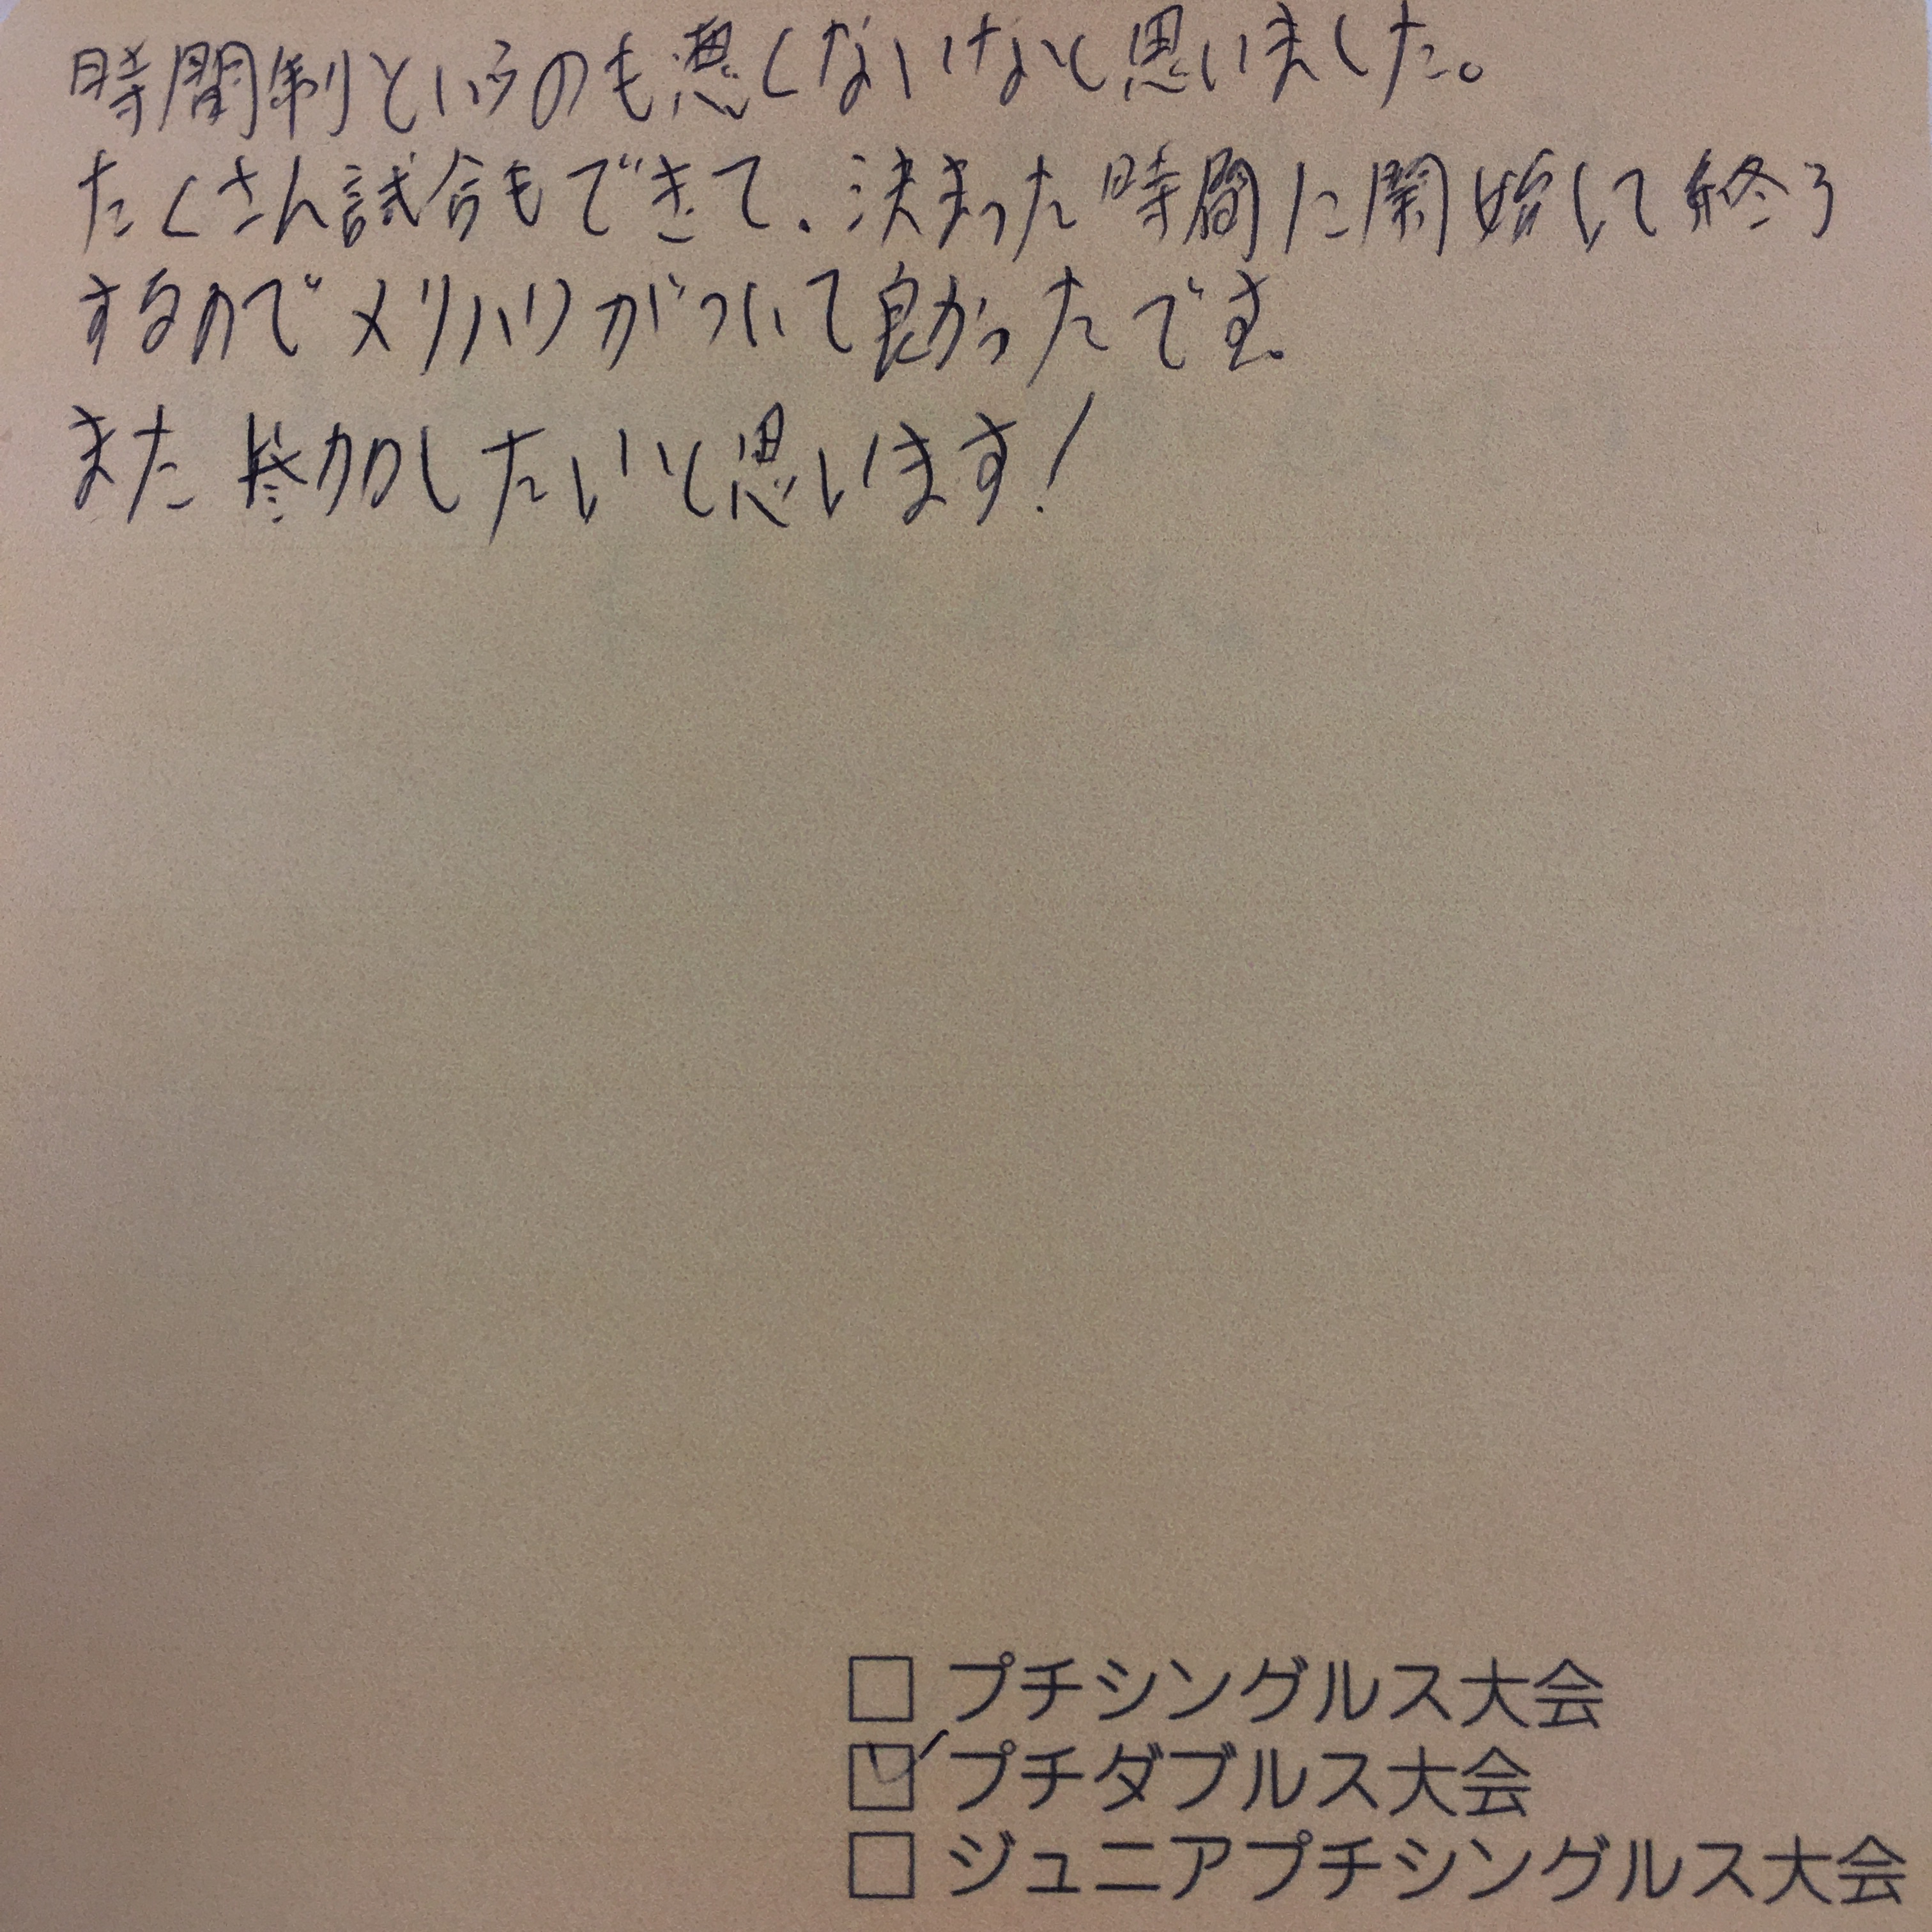 時間制というのも悪くないなと思いました。
たくさん試合もできて、決まった時間に開始して終了
するのでメリハリがついて良かったです。
また参加したいと思います!
□ プチシングルス大会
☑ プチダブルス大会
□ ジュニアプチシングルス大会